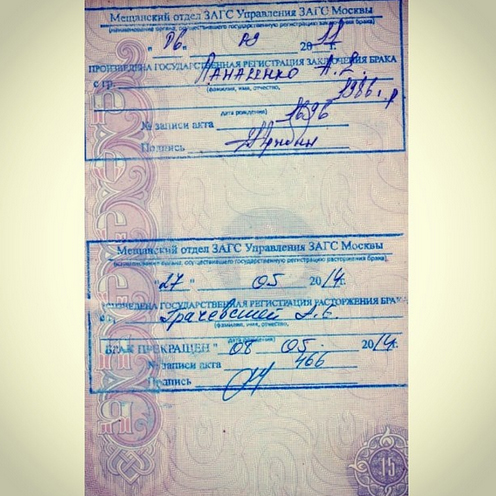 Мещанский отдел ЗАГС Управления ЗАГС Москвы
(наименование органа, осуществившего государственную регистрацию заключения брака)
"06" 09 2011
ПРОИЗВЕДЕНА ГОСУДАРСТВЕННАЯ РЕГИСТРАЦИЯ ЗАКЛЮЧЕНИЯ БРАКА
с гр. Панасенко А.
(фамилия, имя, отчество,
1986 г.р
дата рождения)
№ записи акта 1696
Подпись
Мещанский отдел ЗАГС Управления ЗАГС Москвы
(наименование органа, осуществившего государственную регистрацию расторжения брака)
"27" 05 2014г.
ПРОИЗВЕДЕНА ГОСУДАРСТВЕННАЯ РЕГИСТРАЦИЯ РАСТОРЖЕНИЯ БРАКА
с гр. Грачевским А.Б.
(фамилия, имя, отчество,
дата рождения)
БРАК ПРЕКРАЩЕН "08 05. 2014г.
№ записи акта 466
Подпись
15